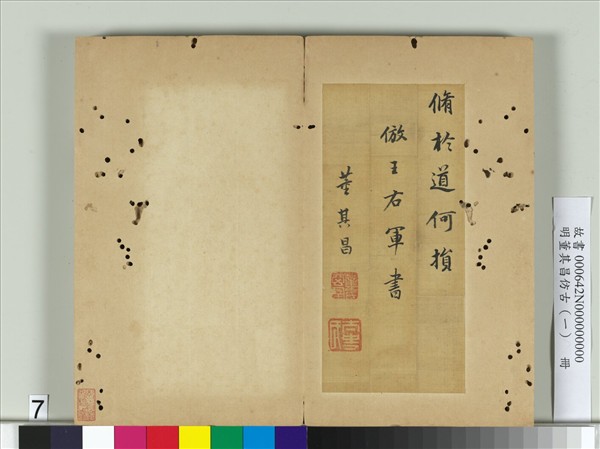 脩於道何損
倣王右軍書
董其昌
故書 000642N000000000
明董其昌仿古（一） 冊
7